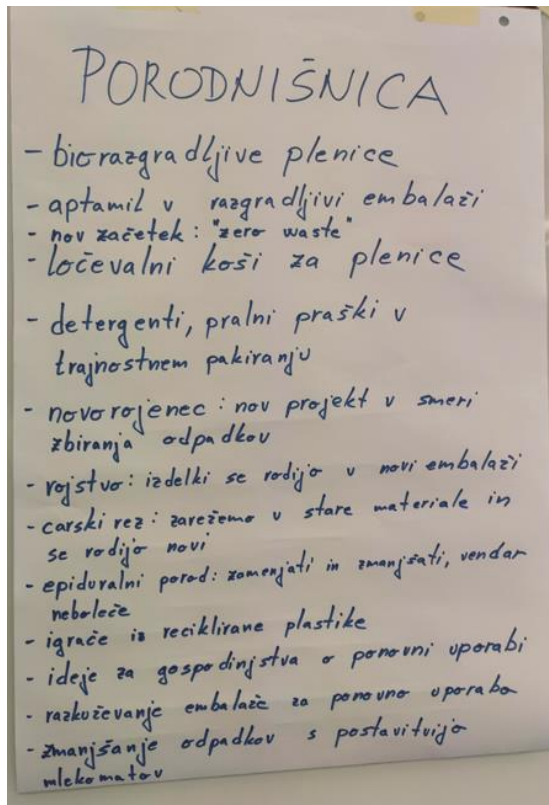 PORODNIŠNICA
- biorazgradljive plenice
- aptamil v razgradljivi embalaži
- nov začetek : "zero waste"
- ločevalni koši za plenice
- detergenti, pralni praški v
trajnostnem pakiranju
- novorojenec : nov projekt v smeri
zbiranja odpadkov
- rojstvo : izdelki se rodijo v novi embalaži
- carski rez : zarežemo v stare materiale in
se rodijo novi
- epiduralni porod : zamenjati in zmanjšati, vendar
neboleče
- igrače iz reciklirane plastike
- ideje za gospodinjstva o ponovni uporabi
- razkuževanje embalaže za ponovno uporabo
- zmanjšanje odpadkov s postavitvijo
mlekomatov